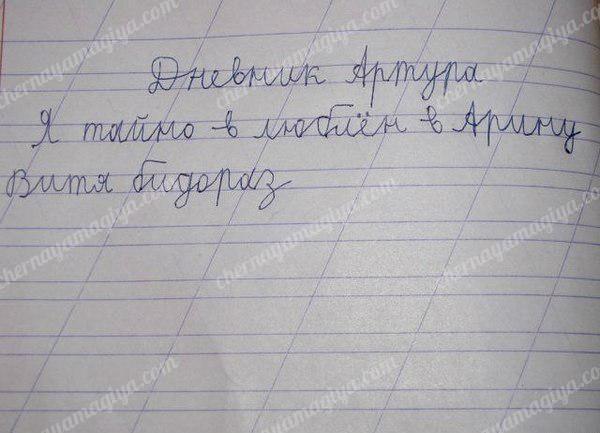 Дневник Артура
Я тайно в люблён в Арину
Витя бидораз
chernayamagiya.com